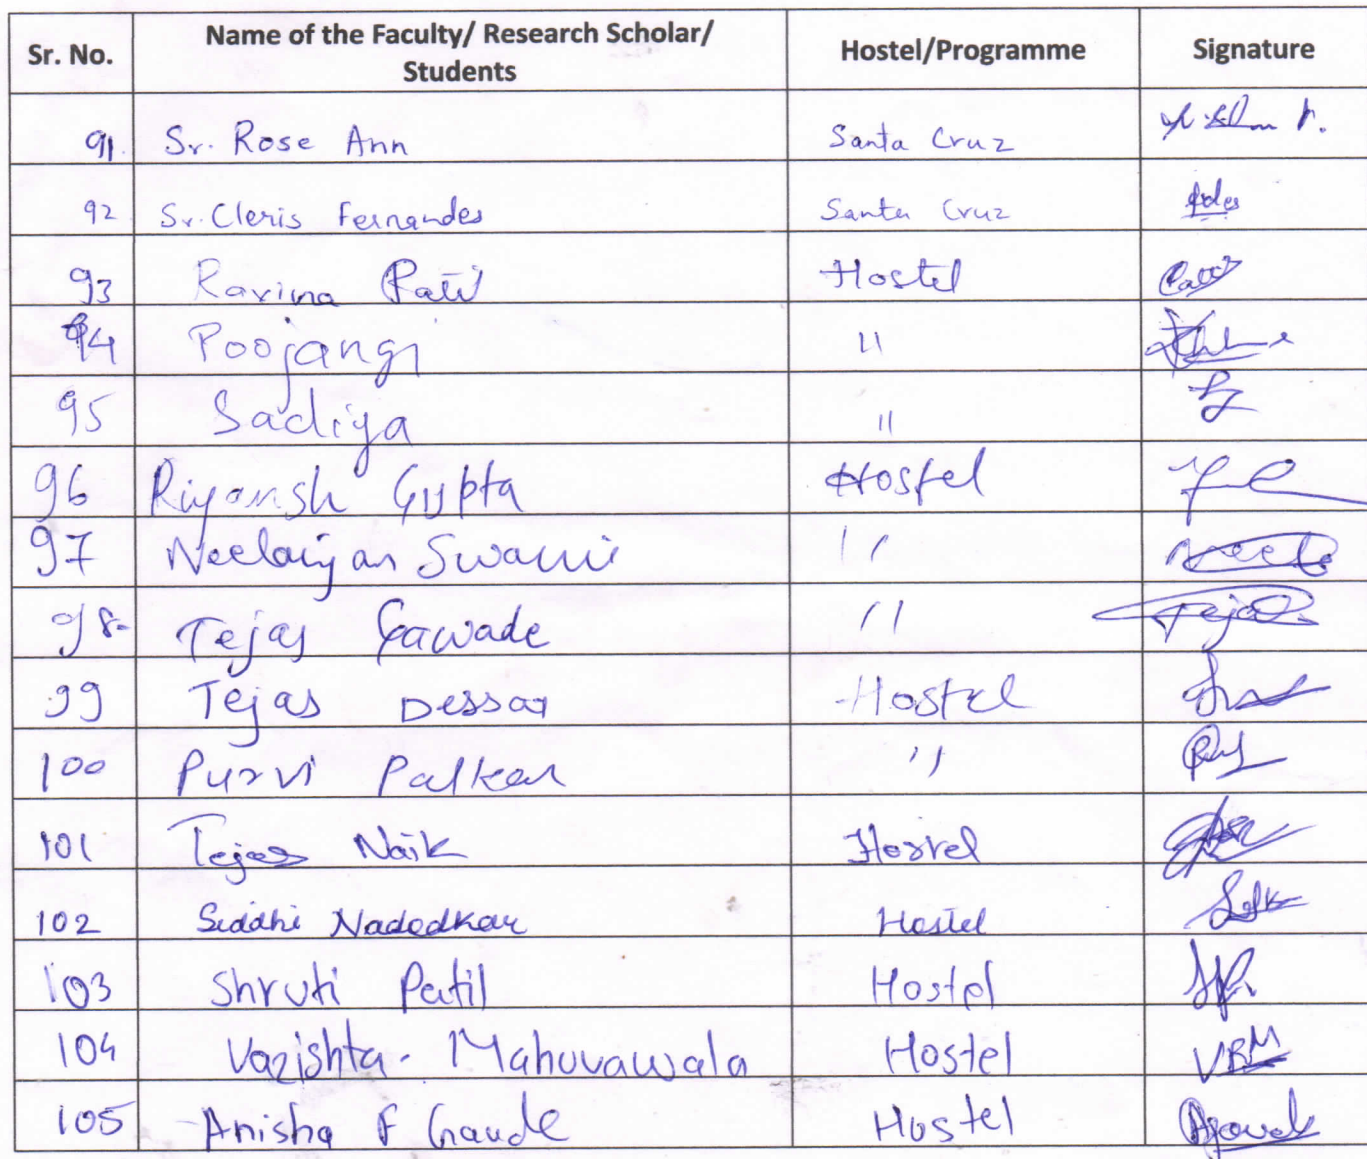 Sr. No. Name of the Faculty/ Research Scholar/ Students Hostel/Programme Signature
91. Sr. Rose Ann Santa Cruz
92 Sr. Cleris Fernandes Santa Cruz
93 Ravina Patil Hostel
94 Poojangi "
95 Sadiya "
96 Riyansh Gupta Hostel
97 Neelanjan Swami "
98 Tejas Gawade " Tejas
99 Tejas Dessai Hostel
100 Purvi Palkar "
101 Tejas Naik Hostel
102 Siddhi Nadodkar Hostel
103 Shruti Patil Hostel
104 Vazishta - Mahuvawala Hostel VRM
105 Anisha F Gaude Hostel